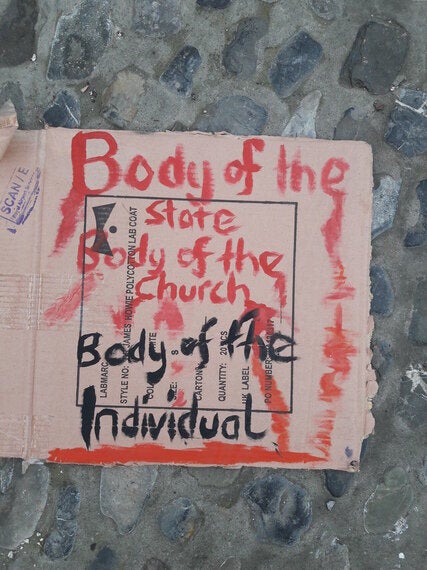 Body of the
State
Body of the
Church
Body of the
Individual
SCAN
LABMARC
STYLE NO:
JAMES HOWIE POLYCOTTON LAB COAT
WHITE
S
CARTON
QUANTITY: 20 PCS
UK LABEL
PO NUMBER